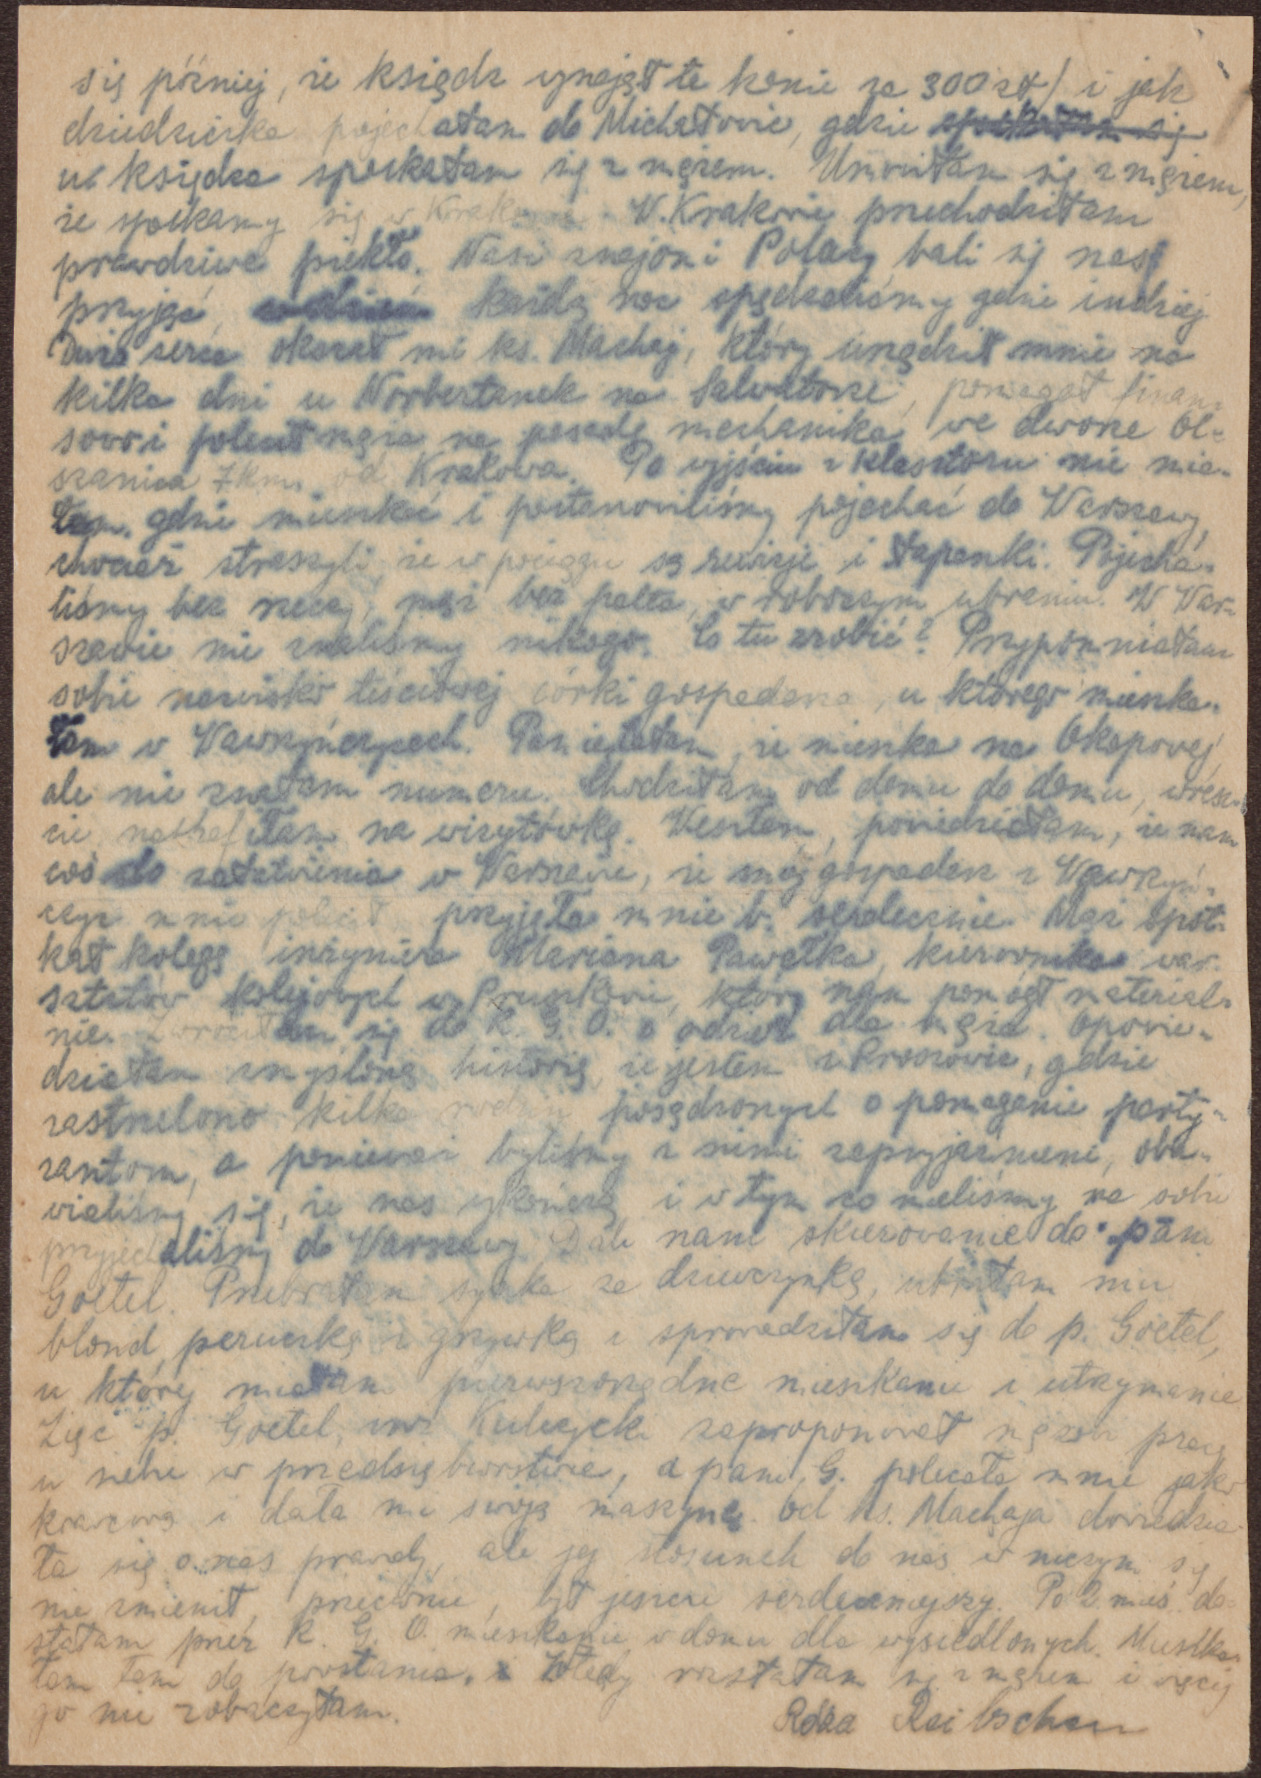 się później, że ksiądz wynajął te konie za 300 zł/ i jak
dziedziczka pojechałam do Michałowic, gdzie
u księdza spotkałam się z mężem. Umówiłam się z mężem,
że spotkamy się w Krakowie. W Krakowie przechodziłam
prawdziwe piekło. Nasi znajomi Polacy bali się nas
przyjąć, każdą noc spędzaliśmy gdzie indziej
Dużo serca okazał mi ks. Machay, który urządził mnie na
kilka dni u Norbertanek na Salwatorze, pomagał finan-
sowo i polecił męża na posadę mechanika we dworze Ol-
szanica 7 km. od Krakowa. Po wyjściu z klasztoru nie mia-
łam gdzie mieszkać i postanowiliśmy pojechać do Warszawy,
chociaż straszyli, że w pociągu są rewizje i łapanki. Pojecha-
liśmy bez rzeczy, mąż bez palta, w roboczym ubraniu. W War-
szawie nie znaliśmy nikogo. Co tu zrobić? Przypomniałam
sobie nazwisko teściowej córki gospodarza, u którego mieszka-
łam w Wawrzyńczycach. Pamiętałam, że mieszka na Okopowej,
ale nie znałam numeru. Chodziłam od domu do domu, wresz-
cie natrafiłam na wizytówkę. Weszłam, powiedziałam, że mam
coś do załatwienia w Warszawie, że mój gospodarz z Wawrzyń-
czyc mnie polecił, przyjęła mnie b. serdecznie. Mąż spot-
kał kolegę inżyniera Mariana Pawełka, kierownika war-
sztatów kolejowych w Pruszkowie, który nam pomógł material-
nie. Zwróciłam się do R. G. O. o odzież dla męża. Opowie-
działam zmyśloną historię, że jestem z Proszowic, gdzie
zastrzelono kilka rodzin posądzonych o pomaganie party-
zantom, a ponieważ byliśmy z nimi zaprzyjaźnieni, oba-
wialiśmy się, że nas wykończą i w tym co mieliśmy na sobie
przyjechaliśmy do Warszawy. Dali nam skierowanie do pani
Goetel. Przebrałam synka za dziewczynkę, ubrałam mu
blond peruczkę z grzywką i sprowadziłam się do p. Goetel,
u której miałam pierwszorzędne mieszkanie i utrzymanie
Zięć p. Goetel, inż. zaproponował mężowi pracę
u siebie w przedsiębiorstwie, a pani G. poleciła mnie jako
krawcową i dała mi swoją maszynę. Od ks. Machaja dowiedzia-
ła się o nas prawdy, ale jej stosunek do nas w niczym się
nie zmienił, przeciwnie, był jeszcze serdeczniejszy. Po 2 mies. do-
stałam przez R. G. O. mieszkanie w domu dla wysiedlonych. Mieszka-
łam tam do powstania. Wtedy rozstałam się z mężem i więcej
go nie zobaczyłam.
Róża Reibscheid